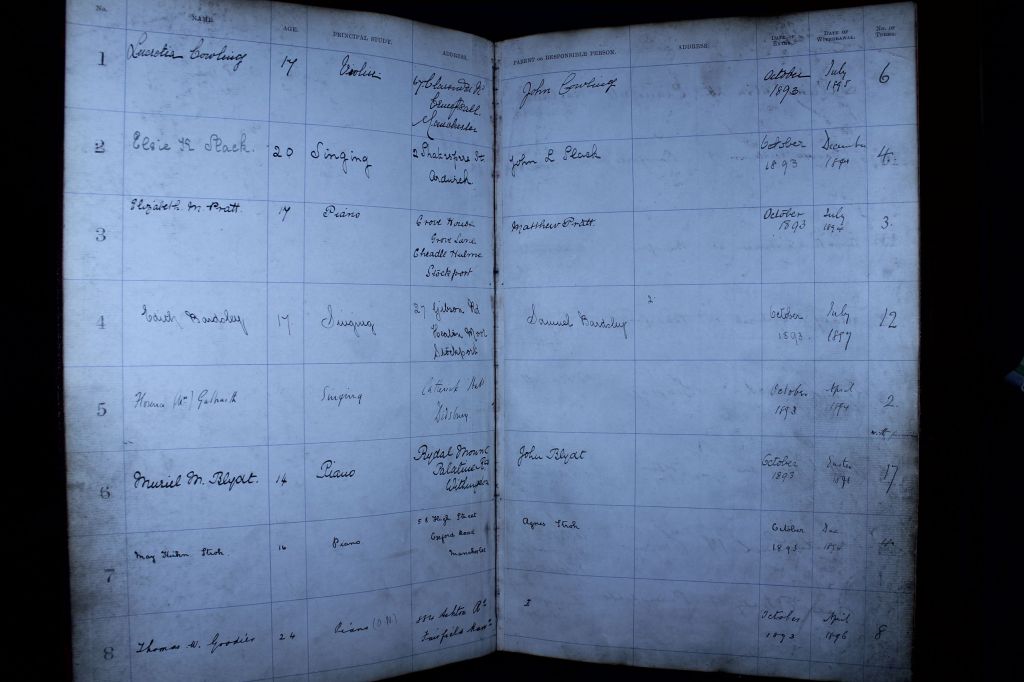 No. NAME. AGE. PRINCIPAL STUDY. ADDRESS. PARENT OR RESPONSIBLE PERSON. ADDRESS. DATE OF ENTRY. DATE OF WITHDRAWAL. NO. OF TERMS.
1 Lucretia Cowling 17 Violin John Cowling October 1893 July 1895 6
Manchester
2 Elsie K Slack. 20 Singing 2 Shakespere St John L Slack October 1893 December 1894 4
Ardwick
3 Elizabeth M. Pratt 17 Piano Grove House Matthew Pratt October 1893 July 1894 3.
Grove Lane
Cheadle Hulme
Stockport
4 Edith Bardsley 17 Singing 27 Gibson Rd Samuel Bardsley 2 October 1893 July 1897 12
Heaton Moor
Stockport
5 Florence (Mrs) Singing October 1893 April 1894 2
Didsbury
6 Muriel M. Blydt. 14 Piano Rydal Mount John Blydt October 1893 Easter 17
Palatine Rd
Withington
7 May Stroh. 16 Piano 58 High Street Agnes Stroh October 1893 Dec 1894 4
Oxford Road
Manchester
8 Thomas W. Goodier 24 Piano Ashton October 1893 April 1896 8
Fairfield